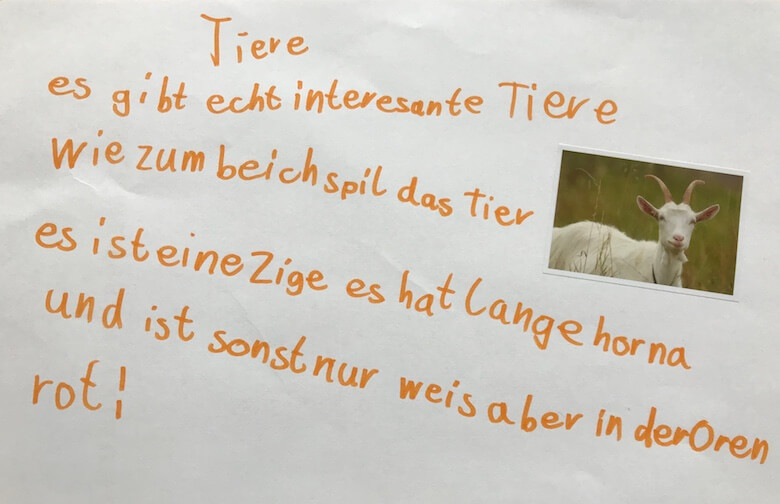 Tiere
es gibt echt interesante Tiere
wie zum beichspil das Tier
es ist eine Zige es hat lange horna
und ist sonst nur weis aber in der Oren
rot!